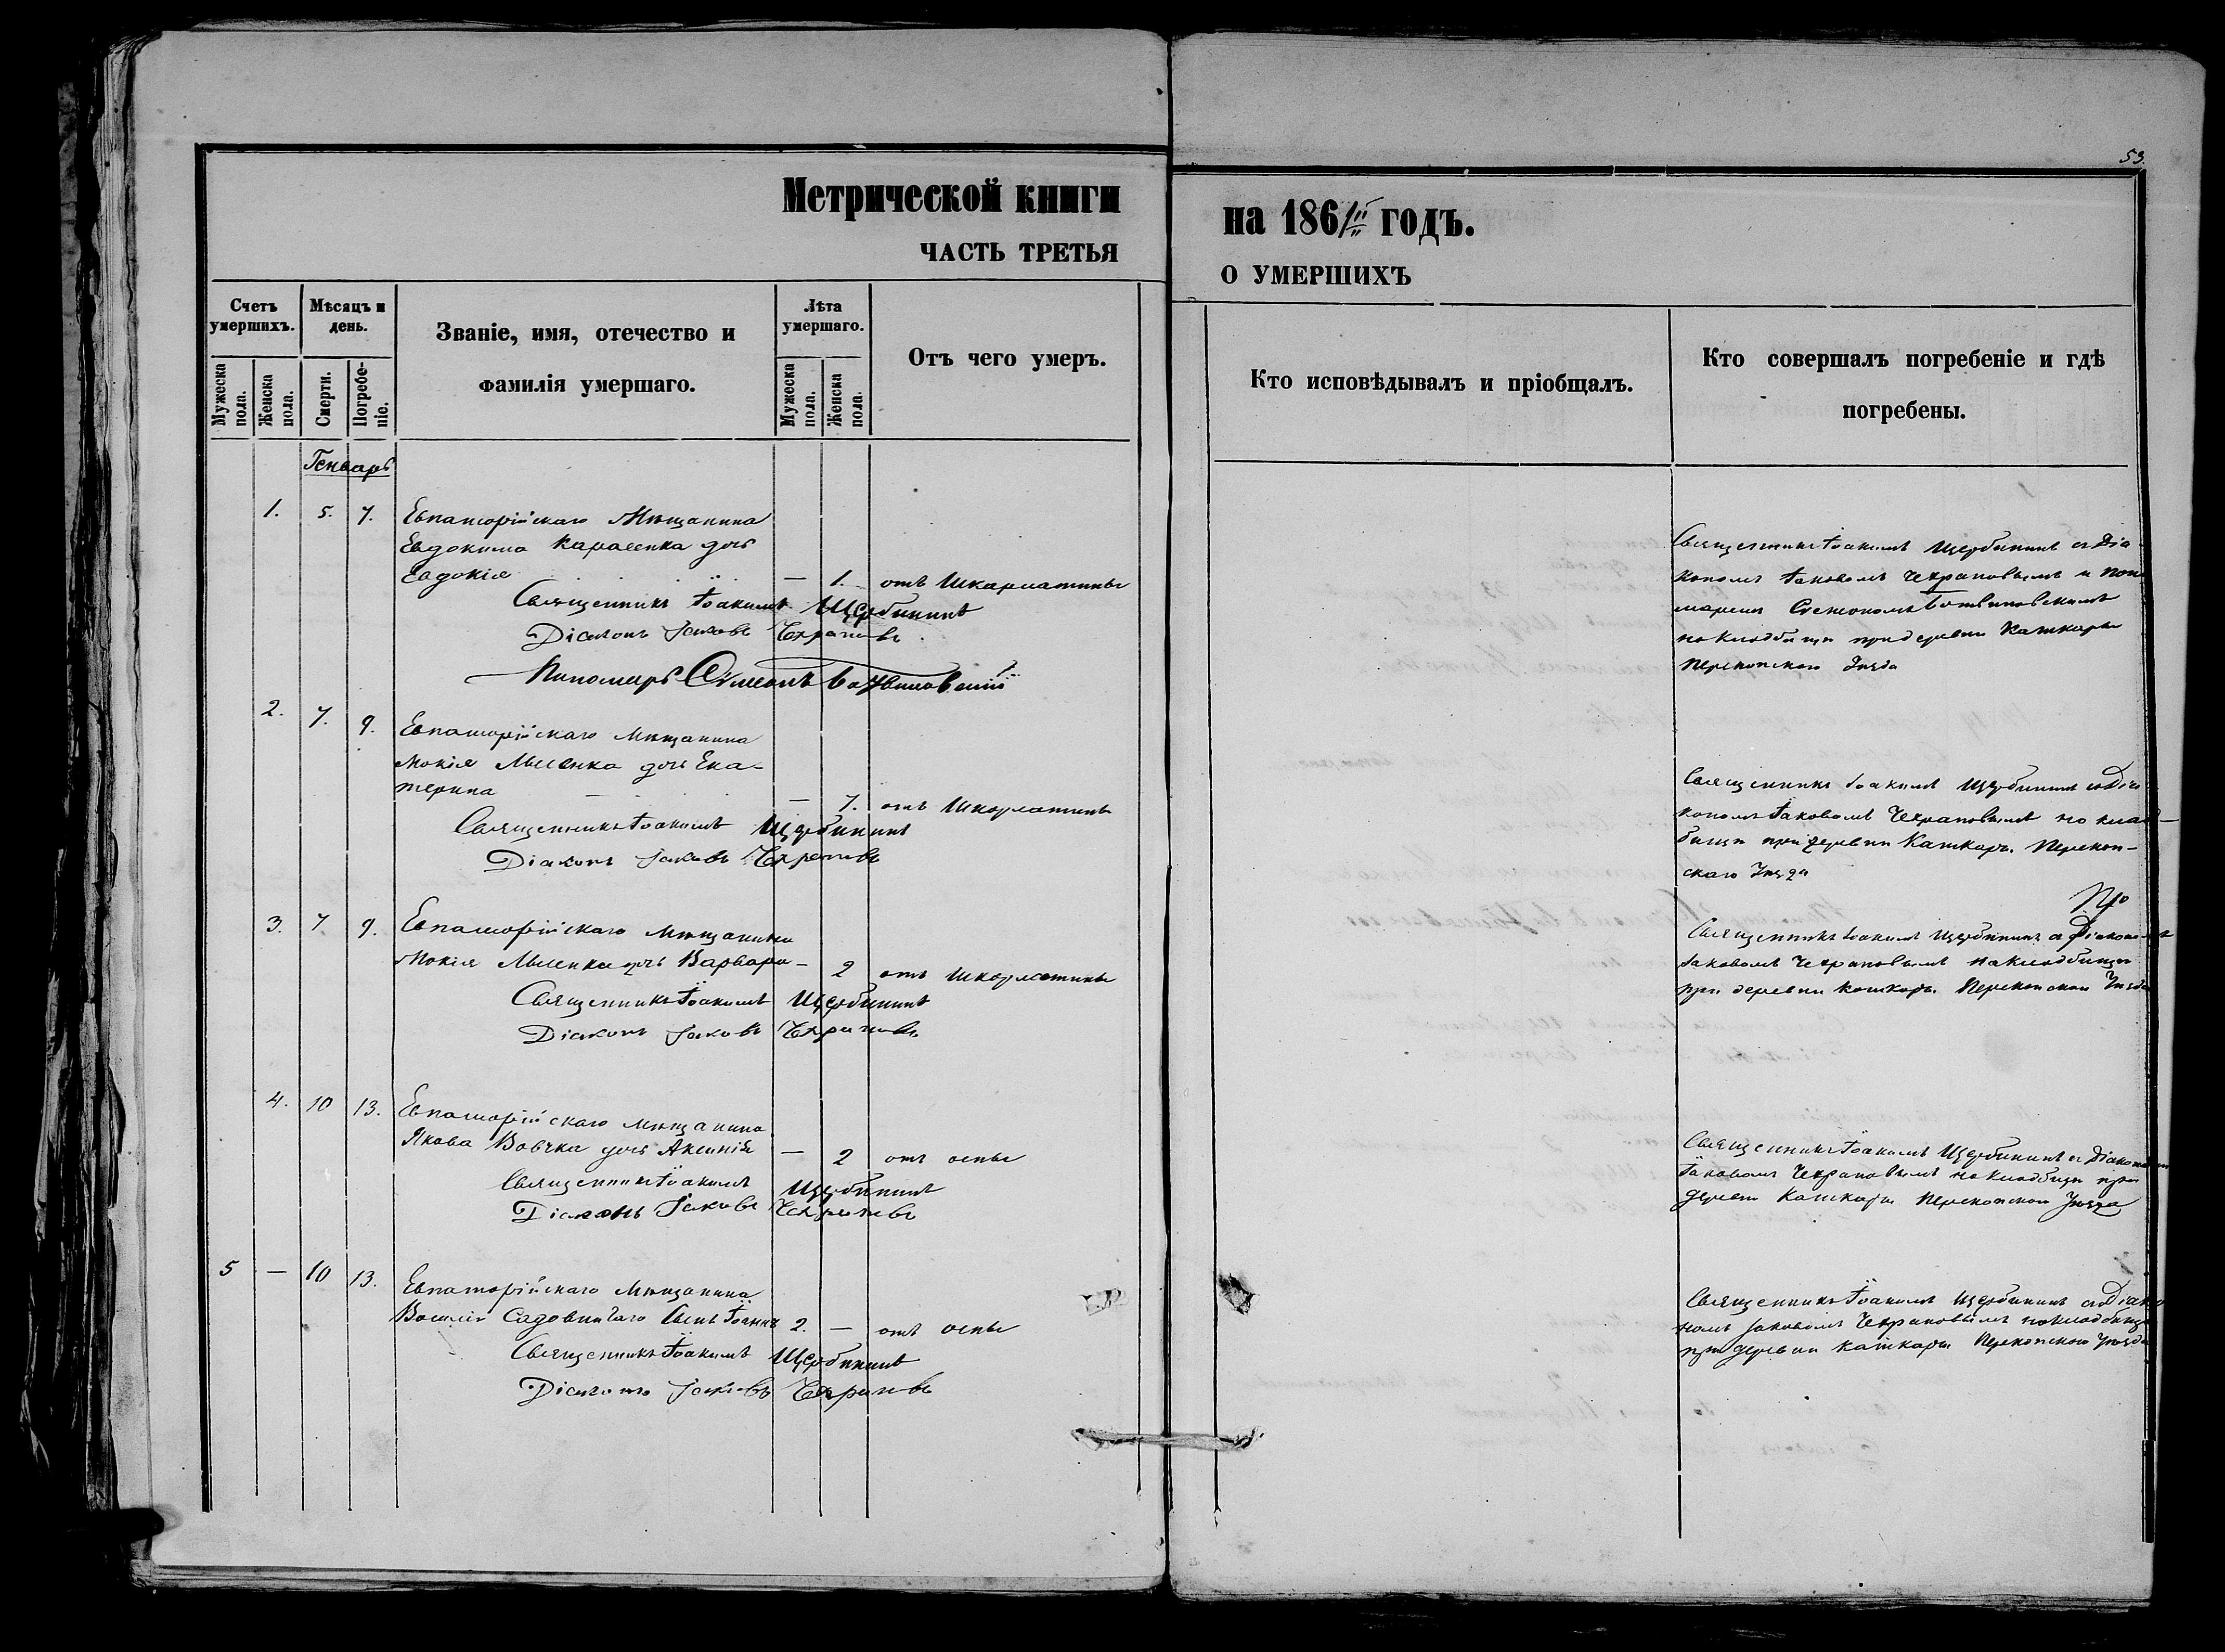 53.
Метрической книги на 1861 годъ.
ЧАСТЬ ТРЕТЬЯ О УМЕРШИХЪ
Счетъ умершихъ.
Мужеска пола.
Женска пола.
Мѣсяцъ и день.
Смерти.
Погребеніе.
Званіе, имя, отечество и фамилія умершаго.
Лѣта умершаго.
Мужеска пола.
Женска пола.
Отъ чего умеръ.
Кто исповѣдывалъ и пріобщалъ.
Кто совершалъ погребеніе и гдѣ погребены.
Генварь
1. 5. 7. Евпаторійскаго Мѣщанина
Евдокима Карасенка дочь
Евдокія — 1. отъ Шкарлатины
Священникъ Іоакимъ Щербининъ
Діаконъ Іаковъ Чехрановъ
Пономарь Симеонъ
Священникъ Іоакимъ Щербининъ съ Діа
кономъ Іаковомъ Чехрановымъ и поно
маремъ
на кладбищѣ при деревни Кашкары
Перекопскаго Уѣзда
2. 7. 9. Евпаторійскаго Мѣщанина
Мокія Мысенка дочь Ека-
терина — 7. отъ Шкарлатины
Священникъ Іоакимъ Щербининъ
Діаконъ Іаковъ Чехрановъ
Священникъ Іоакимъ Щербининъ съ Діа
кономъ Іаковомъ Чехрановымъ на клад-
бищѣ при деревни Кашкары Перекоп-
скаго Уѣзда
3. 7 9. Евпаторійскаго Мѣщанина
Мокія Мысенка дочь Варвара — 2 отъ Шкарлатины
Священникъ Іоакимъ Щербининъ
Діаконъ Іаковъ Чехрановъ
Священникъ Іоакимъ Щербининъ съ Діакономъ
Іаковомъ Чехрановымъ на кладбищѣ
при деревни Кашкары Перекопскаго Уѣзда
4. 10 13. Евпаторійскаго мѣщанина
Якова Вовчка дочь Аксинія — 2 отъ оспы
Священникъ Іоакимъ Щербининъ
Діаконъ Іаковъ Чехрановъ
Священникъ Іоакимъ Щербининъ съ Діакономъ
Іаковомъ Чехрановымъ на кладбищѣ при
деревни Кашкары Перекопскаго Уѣзда
5 — 10 13. Евпаторійскаго Мѣщанина
Василія Садовничаго Сынъ Іоаннъ 2. — отъ оспы
Священникъ Іоакимъ Щербининъ
Діаконъ Іаковъ Чехрановъ
Священникъ Іоакимъ Щербининъ съ Діако
номъ Іаковомъ Чехрановымъ на кладбищѣ
при деревни Кашкары Перекопскаго Уѣзда